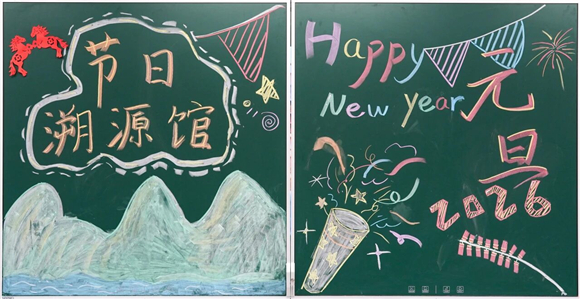 节日
溯源馆
Happy
New year
元旦
2026